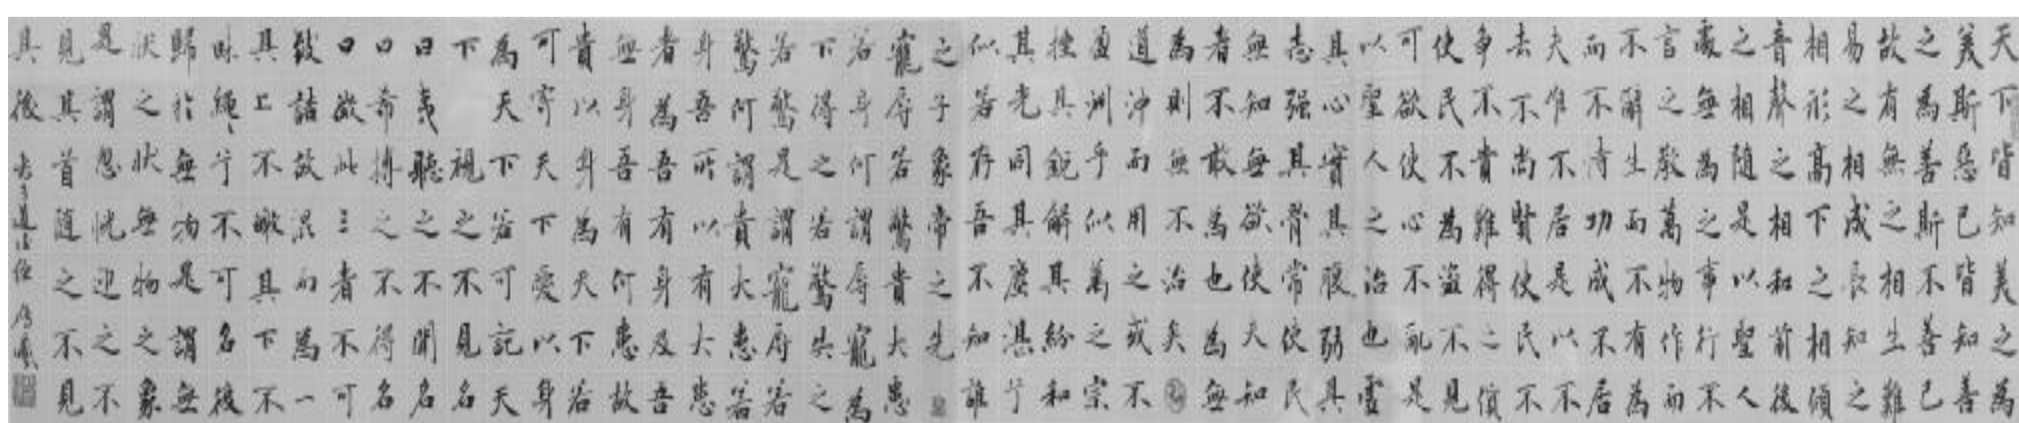 天下皆知美之為
美斯惡已皆知善
之為善斯不善已
故有無之相生難
易之相成長知之
相形高下之相傾
音聲之相和前後
之相隨是以聖人
處無為之事行不
言之教萬物作而
不辭生而不有為
而不恃功成不居
夫惟不居是以不
去不尚賢使民不
爭不貴難得之貨
使民不為盜不見
可欲使心不亂是
以聖人之治也虛
其心實其腹弱其
志强其骨常使民
無知無欲使夫知
者不敢為也為無
為則無不治矣
道沖而用之或不
盈淵乎似萬之宗
挫其銳解其紛和
其光同其塵湛兮
似若存吾不知誰
之子象帝之先
寵辱若驚貴大患
若身何謂辱寵為
下得之若驚失之
若驚是謂寵辱若
驚何謂貴大患若
身吾所以有大患
者為吾有身及吾
無身吾有何患故
貴以身為天下若
可寄天下愛以身
為天下若可託天
下 視之不見名
曰夷聽之不聞名
曰希搏之不得名
曰微此三者不可
致詰故混而為一
其上不皦其下不
昧繩〻兮不可名復
歸於無物是謂無
狀之狀無物之象
是謂惚恍迎之不
見其首隨之不見
其後 老子道德經